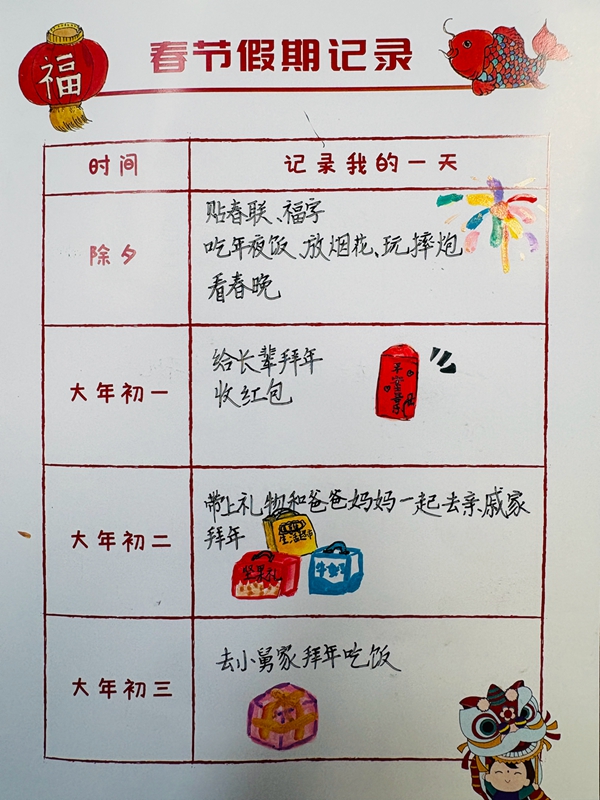 福
春节假期记录
时间
记录我的一天
除夕
贴春联、福字
吃年夜饭、放烟花、玩摔炮
看春晚
大年初一
给长辈拜年
收红包
大年初二
带上礼物和爸爸妈妈一起去亲戚家
拜年
生活超市
坚果礼
大年初三
去小舅家拜年吃饭